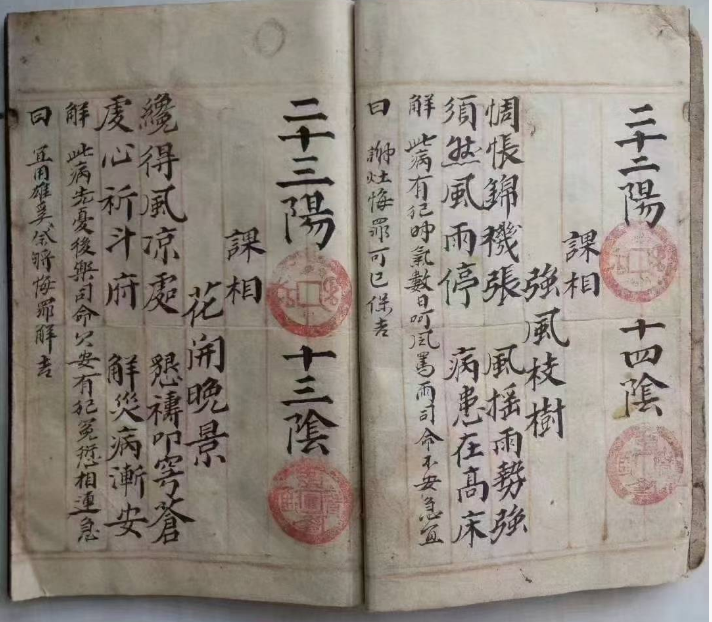 二十二陽 十四陰
課相
強風枝樹
惆悵錦機張 風搖雨勢強
須然風雨停 病患在高床
解 此病有犯時氣數日呵風罵雨司命不安急宜
曰 謝灶悔罪可已保吉
二十三陽 十三陰
課相
花開晚景
纔得風凉處 懇禱叩穹蒼
虔心祈斗府 解災病漸安
解 此病先憂後樂司命公安有犯冤愆相連急
曰 宜用雄 悔罪解吉